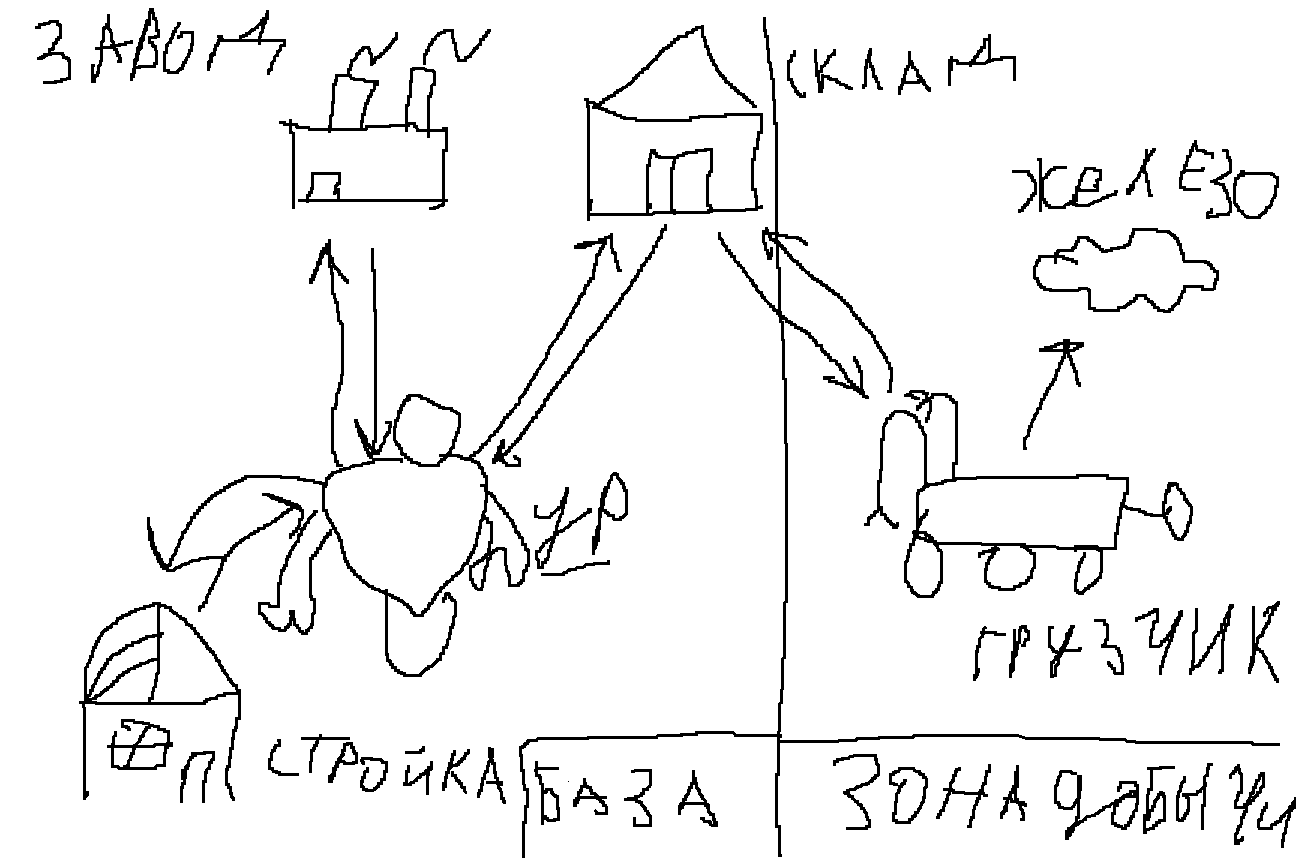 ЗАВОД
СКЛАД
ЖЕЛЕЗО
УР
ГРУЗЧИК
СТРОЙКА
БАЗА
ЗОНА ДОБЫЧИ